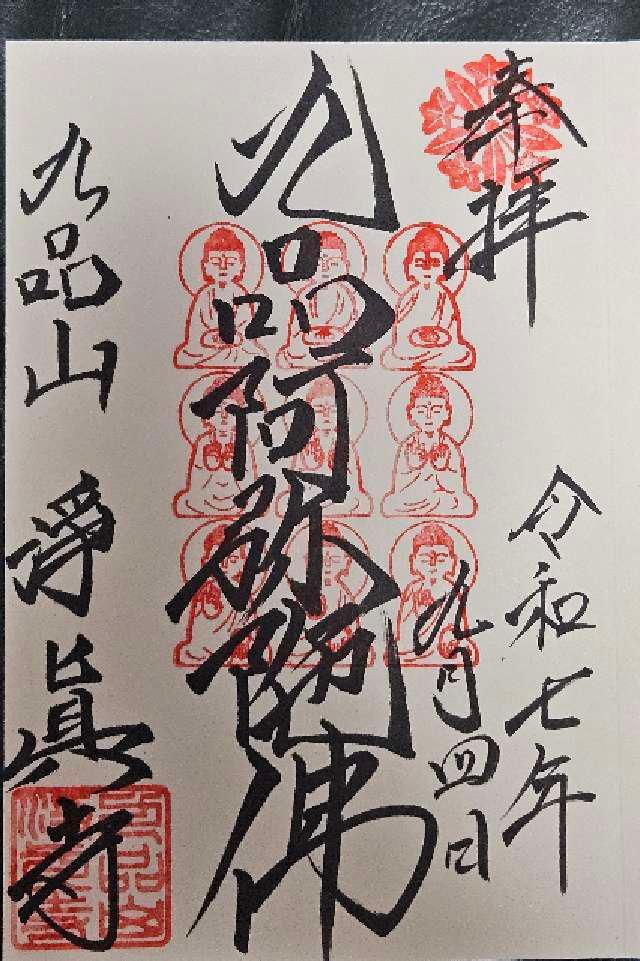 奉拝
令和七年
九月四日
九品阿弥陀佛
九品山 淨眞寺